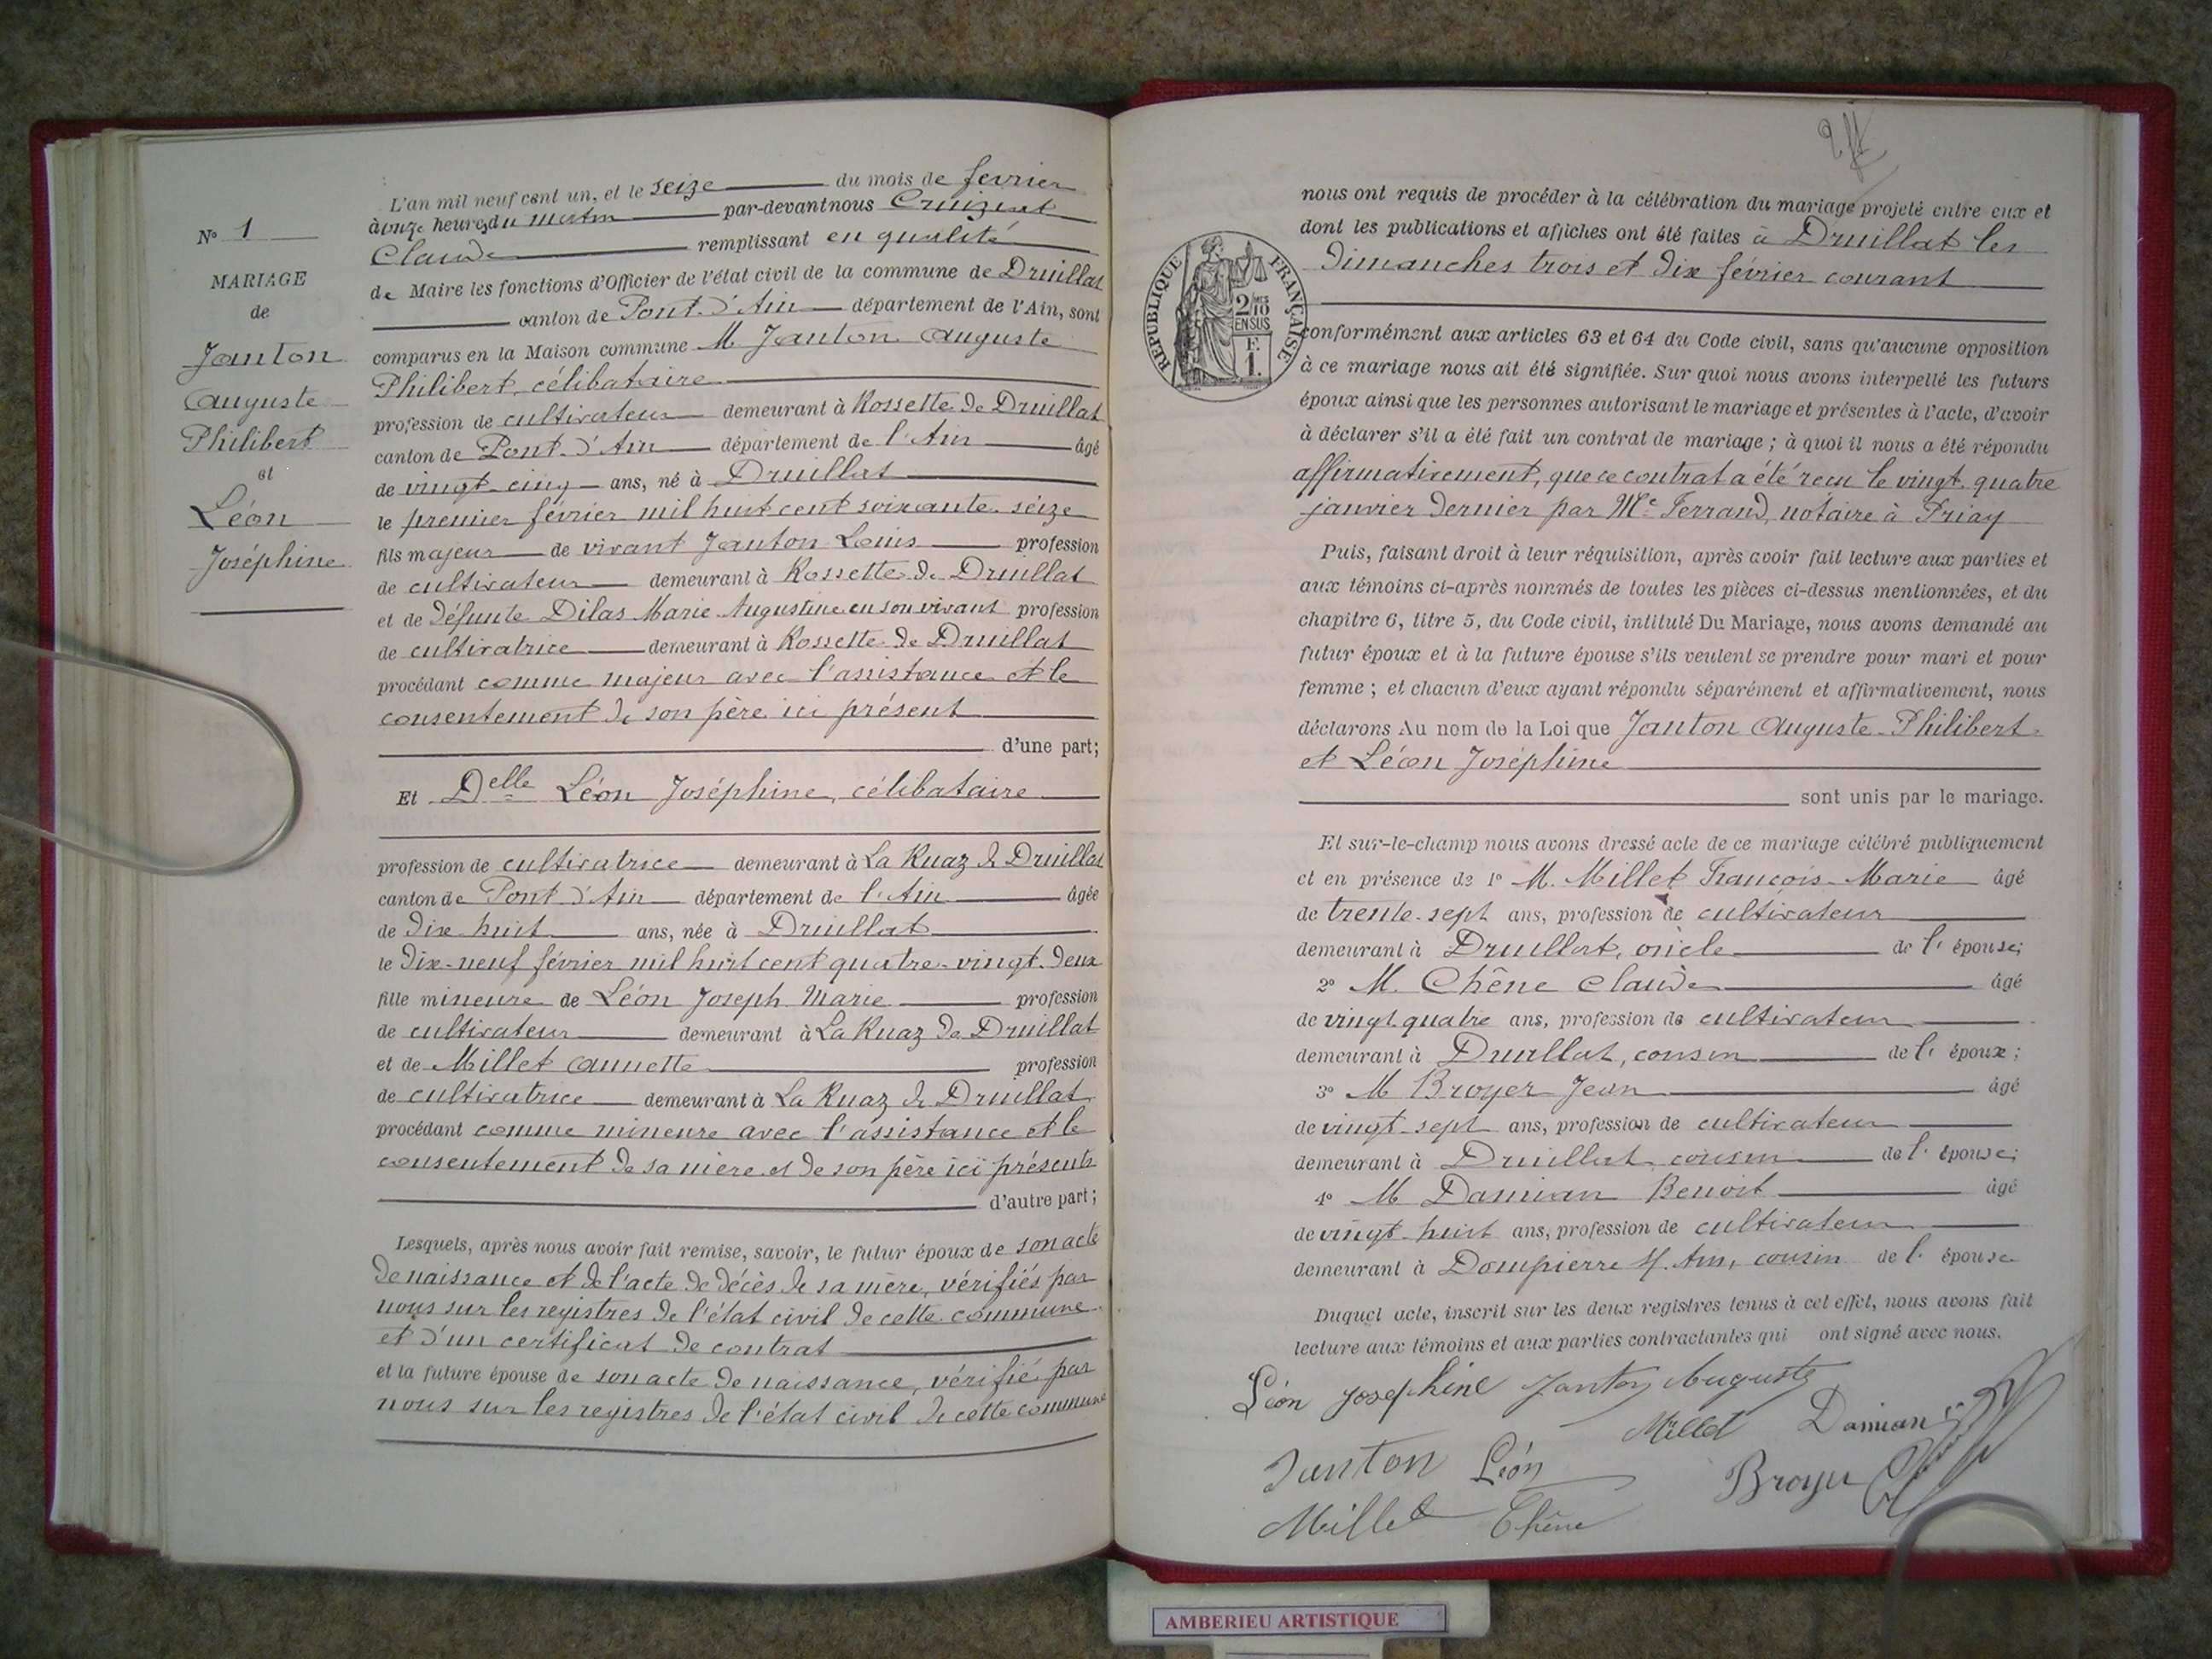 N° 1
MARIAGE
de
Janton
Auguste
Philibert
et
Léon
Joséphine
L'an mil neuf cent un, et le seize du mois de fevrier
à onze heures du matin par-devant nous Cruizeat
Claude remplissant en qualité
de Maire les fonctions d'Officier de l'état civil de la commune de Druillat
canton de Pont-d'Ain département de l'Ain, sont
comparus en la Maison commune M Janton Auguste
Philibert, célibataire
profession de cultivateur demeurant à Rossette de Druillat
canton de Pont-d'Ain département de l'Ain âgé
de vingt-cinq ans, né à Druillat
le premier février mil huit cent soixante-seize
fils majeur de vivant Janton Louis profession
de cultivateur demeurant à Rossette de Druillat
et de défunte Dilas Marie-Augustine en son vivant profession
de cultivatrice demeurant à Rossette de Druillat
procédant comme majeur avec l'assistance et le
consentement de son père ici présent
d'une part;
Et Delle Léon Joséphine, célibataire
profession de cultivatrice demeurant à La Ruaz de Druillat
canton de Pont-d'Ain département de l'Ain âgée
de dix-huit ans, née à Druillat
le dix-neuf février mil huit cent quatre-vingt-deux
fille mineure de Léon Joseph-Marie profession
de cultivateur demeurant à La Ruaz de Druillat
et de Millet Annette profession
de cultivatrice demeurant à La Ruaz de Druillat
procédant comme mineure avec l'assistance et le
consentement de sa mère et de son père ici présents
d'autre part;
Lesquels, après nous avoir fait remise, savoir, le futur époux de son acte
de naissance et de l'acte de décès de sa mère, vérifiés par
nous sur les registres de l'état civil de cette commune
et d'un certificat de contrat
et la future épouse de son acte de naissance, vérifié par
nous sur les registres de l'état civil de cette commune
RÉPUBLIQUE FRANÇAISE
2/10
EN SUS
F.
1.
nous ont requis de procéder à la célébration du mariage projeté entre eux et
dont les publications et affiches ont été faites à Druillat les
dimanches trois et dix février courant
conformément aux articles 63 et 64 du Code civil, sans qu'aucune opposition
à ce mariage nous ait été signifiée. Sur quoi nous avons interpellé les futurs
époux ainsi que les personnes autorisant le mariage et présentes à l'acte, d'avoir
à déclarer s'il a été fait un contrat de mariage ; à quoi il nous a été répondu
affirmativement, que ce contrat a été reçu le vingt-quatre
janvier dernier par Me Ferrand, notaire à Priay
Puis, faisant droit à leur réquisition, après avoir fait lecture aux parties et
aux témoins ci-après nommés de toutes les pièces ci-dessus mentionnées, et du
chapitre 6, titre 5, du Code civil, intitulé Du Mariage, nous avons demandé au
futur époux et à la future épouse s'ils veulent se prendre pour mari et pour
femme ; et chacun d'eux ayant répondu séparément et affirmativement, nous
déclarons Au nom de la Loi que Janton Auguste-Philibert
et Léon Joséphine
sont unis par le mariage.
Et sur-le-champ nous avons dressé acte de ce mariage célébré publiquement
et en présence de 1° M. Millet François-Marie âgé
de trente-sept ans, profession de cultivateur
demeurant à Druillat, oncle de l' épouse;
2° M. Chêne Claude âgé
de vingt quatre ans, profession de cultivateur
demeurant à Druillat, cousin de l' époux ;
3° M Broyer Jean âgé
de vingt-sept ans, profession de cultivateur
demeurant à Druillat cousin de l' épouse;
4° M Damian Benoit âgé
de vingt-huit ans, profession de cultivateur
demeurant à Dompierre s/. Ain, cousin de l' épouse
Duquel acte, inscrit sur les deux registres tenus à cet effet, nous avons fait
lecture aux témoins et aux parties contractantes qui ont signé avec nous.
Léon Josephine Janton Auguste
Millet Damian
Janton Léon
Broyer
Millet Chêne
AMBERIEU ARTISTIQUE